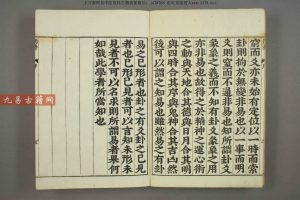 窮而爻亦未始有定位以一時而索
卦則拘於无變非易也以一事而明
爻則窒而不通非易也知所謂卦爻
彖象之義而不知有卦爻彖象之用
亦非易也故得之於精神之運心術
之動與天地合其德與日月合其明
與四時合其序與鬼神合其吉凶然
後可以謂之知易也雖然易之有卦
易之已形者也卦之有爻卦之已見
者也已形已見者可以言知未形未
見者不可以名求則所謂易者果何
如哉此學者所當知也
九易古籍网